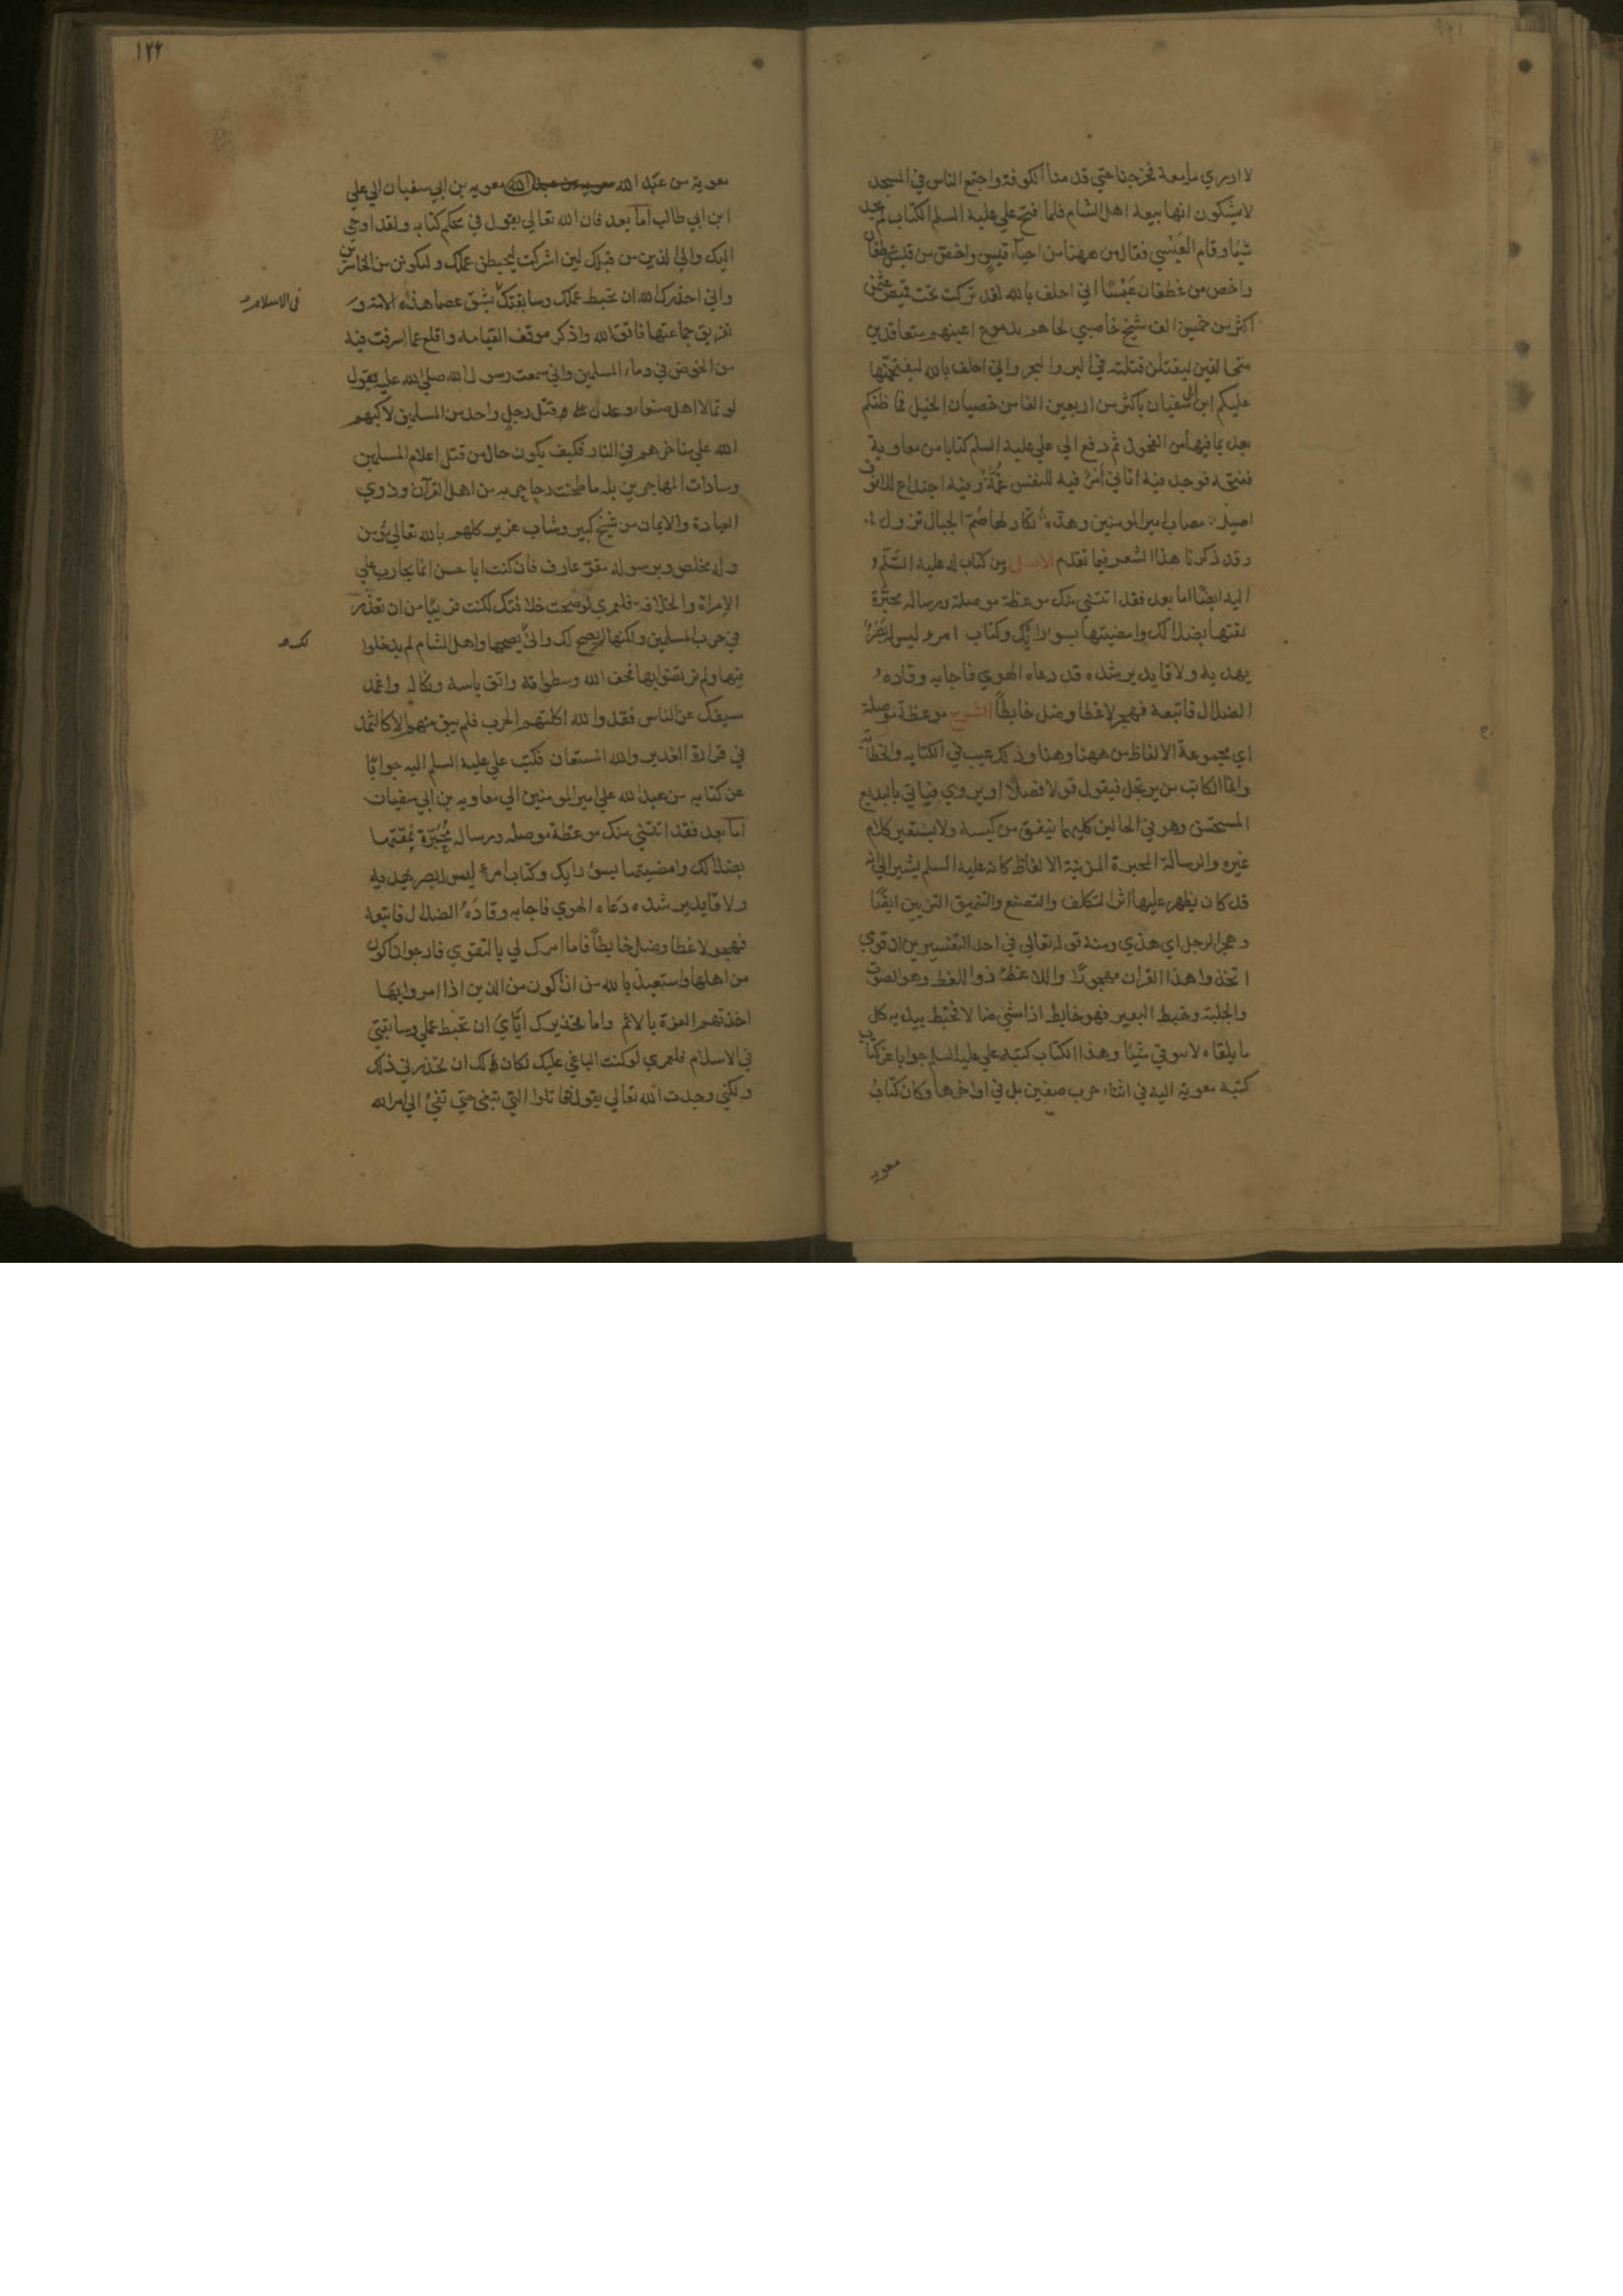 لا ادري ما معه فخرجنا حتي قدمنا الكوفة واجتمع الناس في المسجد
لا يشكون انها بيعة اهل الشام فلما فتح علي عليه السلم الكتاب لم يجد
شيئا وقام العَبْسي فقال من ههنا من احياء قيسٍ واخص من قيس غطفان
واخص من غطفان عَبْسًا اني احلف بالله لقد تركت تحت قميص عثمن
اكثر من خمسين الف شيخ خاضبي لحاهم بدموع اعينهم متعاقدين
متحالفين ليقتلن قتلته في البر والبحر واني احلف بالله ليقتحمنّها
عليكم ابن ابي سفيان باكثر من اربعين الفا من خصيان الخيل فما ظنكم
بعد بما فيها من الفحول ثم دفع الي علي عليه السلم كتابا من معاوية
ففتحه فوجد فيه اتاني امرٌ فيه للنفس غُمَّةٌ وفيه اجتداع للانوف
اصيل مصاب امير المومنين وهدّة تكاد لها صُمّ الجبال تزول
وقد ذكرنا هذا الشعر فيما تقدم الاصل ومن كتاب له عليه السّلم
اليه ايضًا اما بعد فقد اتتني منك موعظة موصلة ورسالة محبّرة
نمقتها بضلالك وامضيتها بسوء رايك وكتاب امرء ليس له بَصَرٌ
يهديه ولا قايد يرشده قد دعاه الهوي فاجابه وقاده
الضلال فاتبعه فهجر لاغطا وضل خابطًا الشرح موعظة موصلة
اي مجموعة الالفاظ من ههنا وهنا وذلك عيب في الكتابه والخطابة
وانما الكاتب من يرتجل فيقول قولا فصلا او يروي فياتي بالبديع
المستحسن وهو في الحالين كليهما ينفق من كيسه ولا يستعير كلام
غيره والرسالة المحبرة المزينة الالفاظ كانه عليه السلم يشير الي انه
قد كان يظهر عليها اثر التكلف والتصنع والتنميق التزيين ايضًا
وهجر الرجل اي هذي ومنه قوله تعالي في احد التفسيرين ان قومي
اتخذوا هذا القران مهجورًا واللاغط ذو اللغط وهو الصوت
والجلبة وخبط البعير فهو خابط اذا مشي ضالا فخبط بيديه كل
ما يلقاه لا يتوقي شيئا وهذا الكتاب كتبه علي عليه السلم جوابا عن كتاب
كتبه معوية اليه في اثناء حرب صفين بل في اواخرها وكان كتابُ
معويه
١٢٢
معوية من عبد الله معويه بن ابي سفيان الي علي
ابن ابي طالب اما بعد فان الله تعالي يقول في محكم كتابه ولقد اوحي
اليك والي الذين من قبلك لين اشركت ليحبطن عملك ولتكونن من الخاسرين
واني احذرك الله ان تحبط عملك وسابقتك بشق عصا هذه الامة و
في الاسلام
تفريق جماعتها فاتق الله واذكر موقف القيامه واقلع عما اسرفت فيه
من الخوض في دماء المسلمين واني سمعت رسول الله صلي الله عليه يقول
لو تمالا اهل صنعا وعدن علي قتل رجل واحد من المسلمين لاكبهم
الله علي مناخرهم في النار فكيف يكون حال من قتل اعلام المسلمين
وسادات المهاجرين بله ما طحنت رحا حربه من اهل القرآن وذوي
العبادة والايمان من شيخ كبير وشاب غرير كلهم بالله تعالي مؤمن
وله مخلص وبرسوله مقرّ عارف فان كنت ابا حسن انما تحارب علي
الامراة والخلافة فلعمري لو صحت خلافتك لكنت قريبًا من ان تعذر
في حرب المسلمين ولكنها لم يصح لك واني بصحتها واهل الشام لم يدخلوا
لك
فيها ولم يرتضوا بها فخف الله وسطواته واتق باسه ونكاله واغمد
سيفك عن الناس فقد والله اكلتهم الحرب فلم يبق منهم الا كالثمد
في قرارة الغدير والله المستعان فكتب علي عليه السلم اليه جوابًا
عن كتابه من عبد الله علي امير المومنين الي معاويه بن ابي سفيان
اما بعد فقد اتتني منك موعظة موصله ورساله مُحَبّرة نمقتها
بضلالك وامضيتها بسوء رايك وكتاب امرء ليس له بصر يهديه
ولا قايد يرشده دعاه الهوي فاجابه وقادَهُ الضلال فاتبعه
فهجر لاغطا وضل خابطًا فاما امرك لي بالتقوي فارجوا ان اكون
من اهلها واستعيذ بالله من ان اكون من الذين اذا امروا بها
اخذتهم العزة بالاثم واما تحذيرك ايّايَ ان تحبط عملي وسابقتي
في الاسلام فلعمري لو كنت الباغي عليك لكان لك ان تحذرني ذلك
ولكني وجدت الله تعالي يقول فقاتلوا التي تبغي حتي تفيءَ الي امر الله